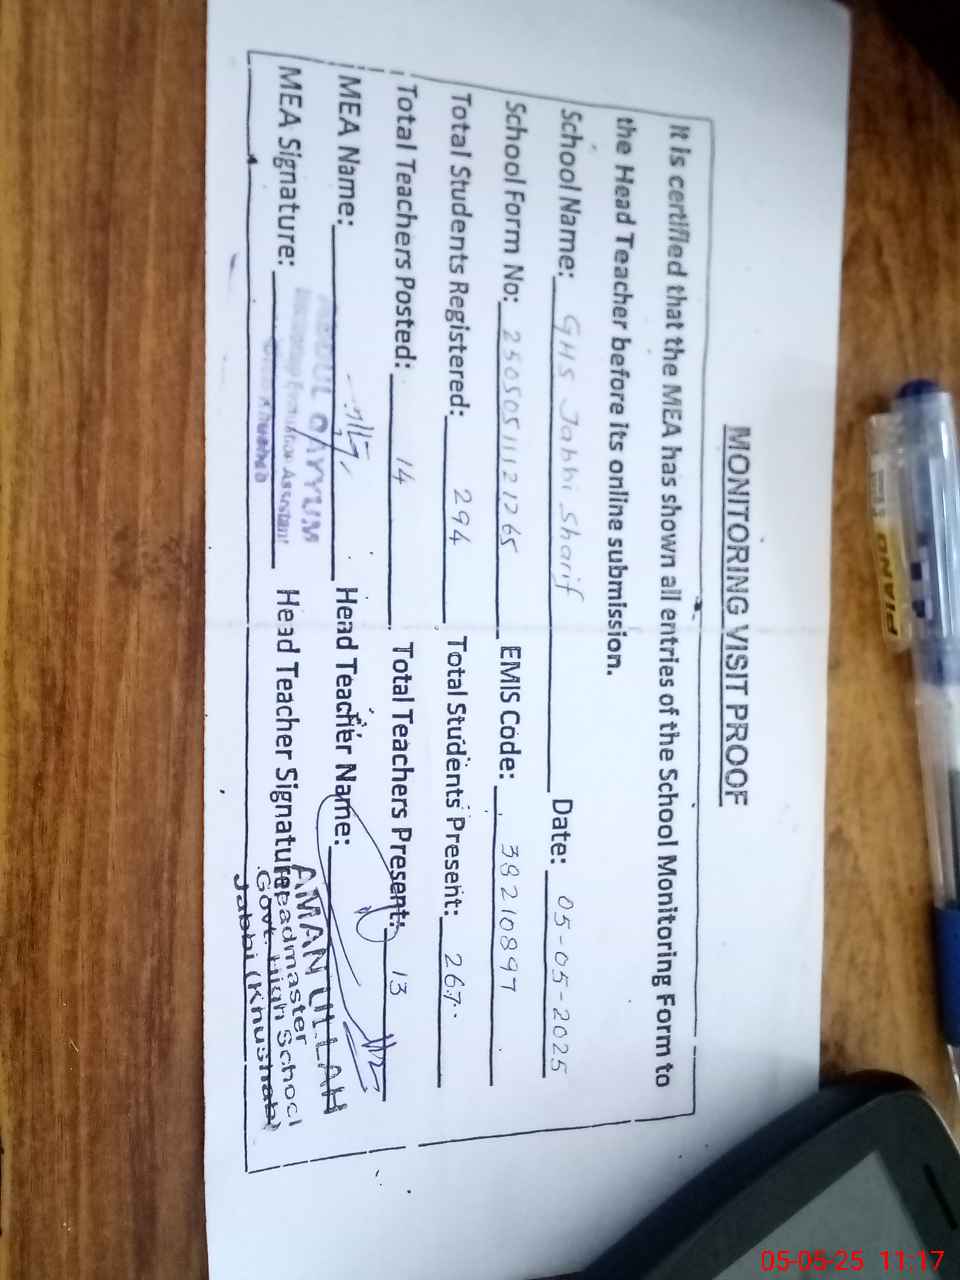 MONITORING VISIT PROOF
It is certified that the MEA has shown all entries of the School Monitoring Form to
the Head Teacher before its online submission.
School Name: GHS Jabhi Sharif Date: 05-05-2025
School Form No: 25050511121265 EMIS Code: 38210897
Total Students Registered: 294 Total Students Present: 267
Total Teachers Posted: 14 Total Teachers Present: 13
MEA Name: Head Teacher Name:
MEA Signature: Head Teacher Signature:
ABDUL QAYYUM
Monitoring Evaluation Assistant
AMAN ULLAH
Headmaster
Govt. High School
Jabbi (Khushab)
PIANO
05-05-25 11:17